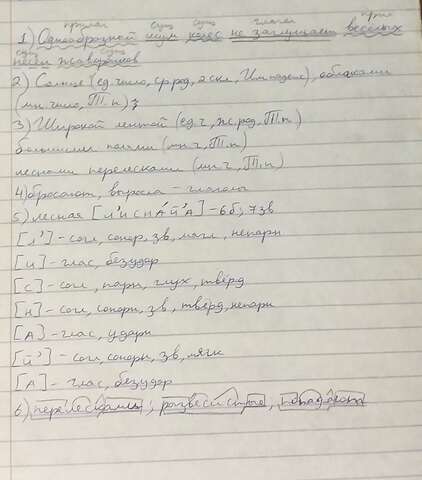 прилаг сущ сущ глагол прил
1) Однообразной шум колёс не заглушает весёлых
сущ сущ
песен жаворонков
2) Солнце (ед. число, ср. род, 2 скл, Им. падеж), облаками
(мн. число, Т.п.);
3) Широкой лентой (ед.ч, ж. род, Т.п)
большими полями (мн.ч, Т.п)
лесными перелесками (мн.ч, Т.п)
4) бросают, выросла - глаголы
5) лесная [Л'ИСНА́Й'А] - 6б, 7зв
[Л'] - согл, сонор, зв, мягк, непарн
[И] - глас, безудар
[С] - согл, парн, глух, твёрд
[Н] - согл, сонорн, зв, твёрд, непарн
[А] - глас, ударн
[Й'] - согл, сонорн, зв, мягк
[А] - глас, безудар
6) перелесками; развесистые,